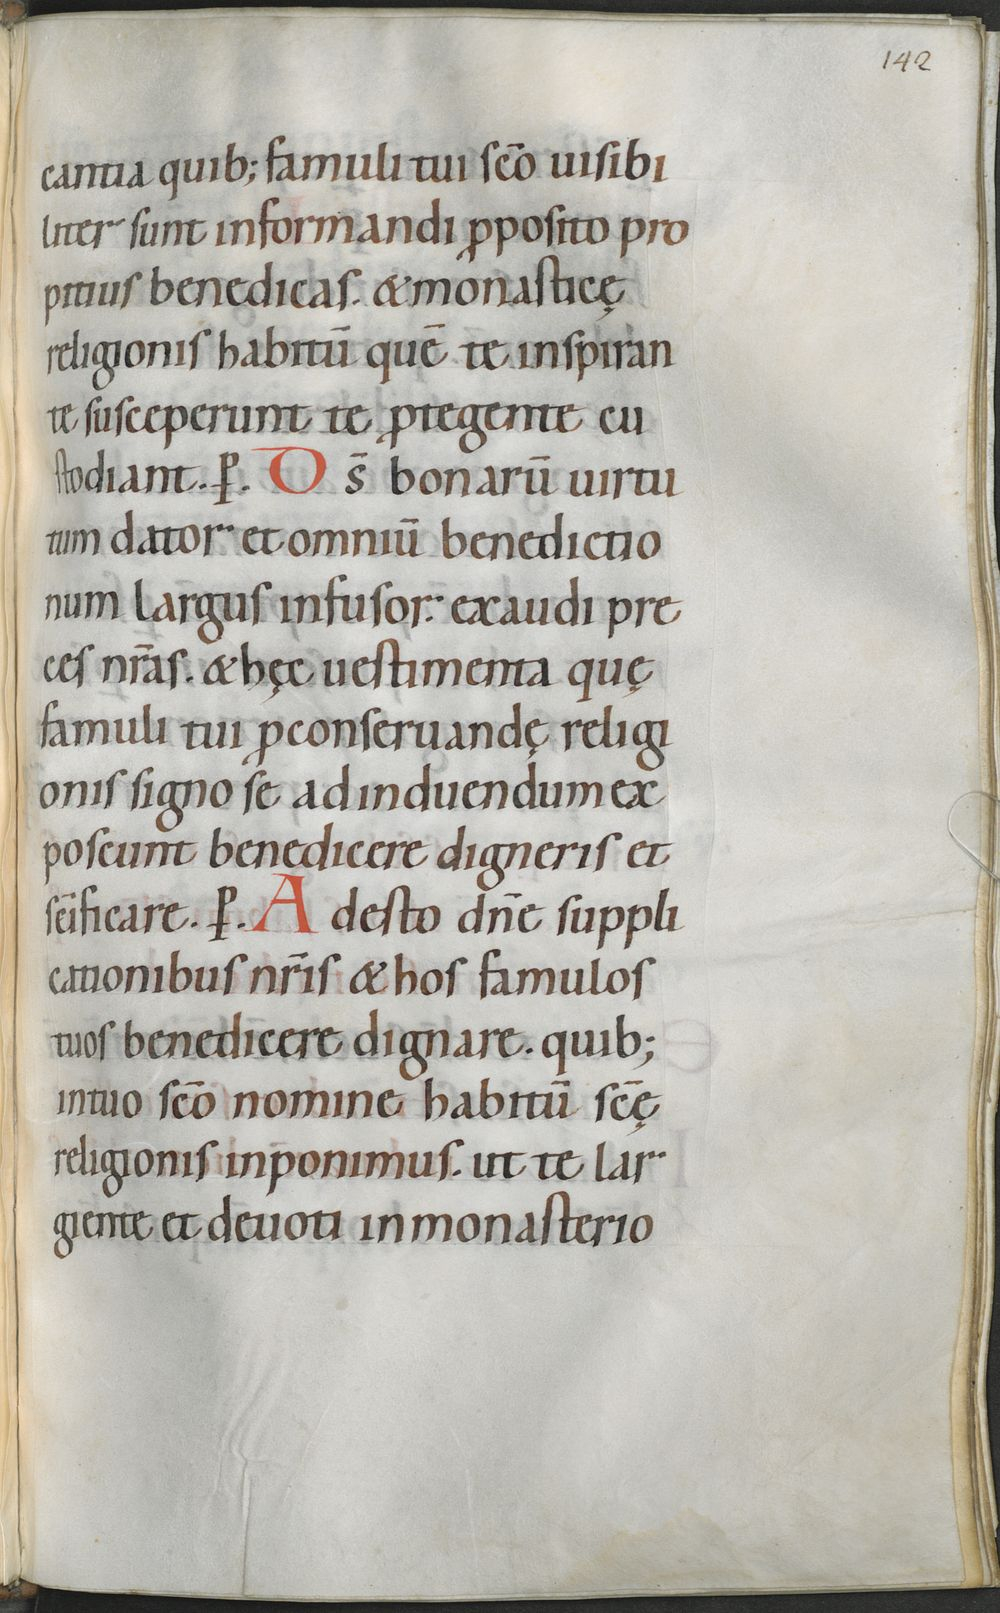 142
cantia quib; famuli tui sc̄o uisibi
liter sunt informandi ꝓposito pro
pitius benedicas. & monasticę
religionis habitū quē te inspiran
te susceperunt te ꝓtegente cu
stodiant. P̱. D s̄ bonarū uirtu
tum dator et omniū benedictio
num largus infusor. exaudi pre
ces nr̄as. & hęc uestimenta quę
famuli tui ꝓ conseruandę religi
onis signo se ad induendum ex
poscunt benedicere digneris et
sc̄ificare. P̱. A desto dn̄e suppli
cationibus nr̄is & hos famulos
tuos benedicere dignare. quib;
in tuo sc̄o nomine habitū sc̄ę
religionis inponimus. ut te lar
giente et deuoti in monasterio